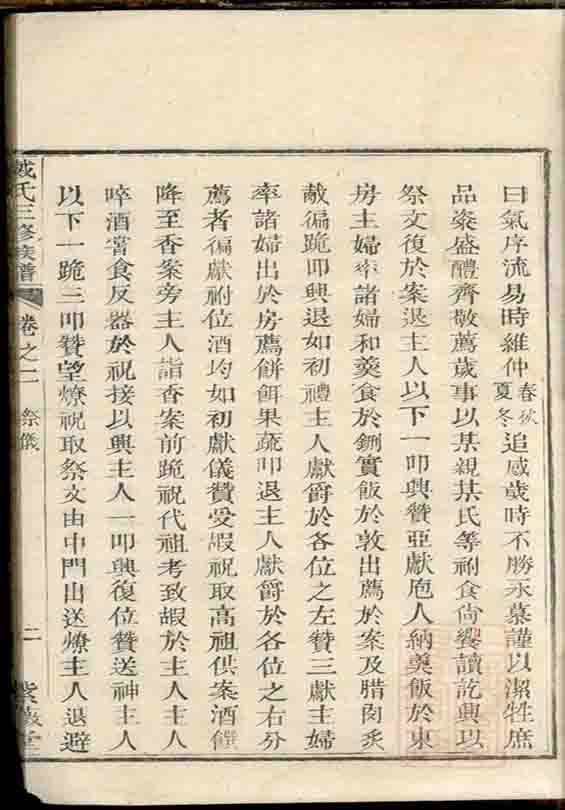 曰氣序流易時維仲春秋夏冬追感歲時不勝永慕謹以潔牲庶
品粢盛醴齊敬薦歲事以某親某氏等祔食尙饗讀訖興以
祭文復於案退主人以下一叩興贊亞獻庖人納羹飯於東
房主婦率諸婦和羹食於鉶實飯於敦出薦於案及腊肉炙
胾徧跪叩興退如初禮主人獻爵於各位之左贊三獻主婦
率諸婦出於房薦餅餌果蔬叩退主人獻爵於各位之右分
薦者徧獻祔位酒均如初獻儀贊受嘏祝取高祖供案酒饌
降至香案旁主人詣香案前跪祝代祖考致嘏於主人主人
啐酒嘗食反器於祝接以興主人一叩興復位贊送神主人
以下一跪三叩贊望燎祝取祭文由中門出送燎主人退避
戴氏三修族譜 卷之二 祭儀 二 紫蔭堂